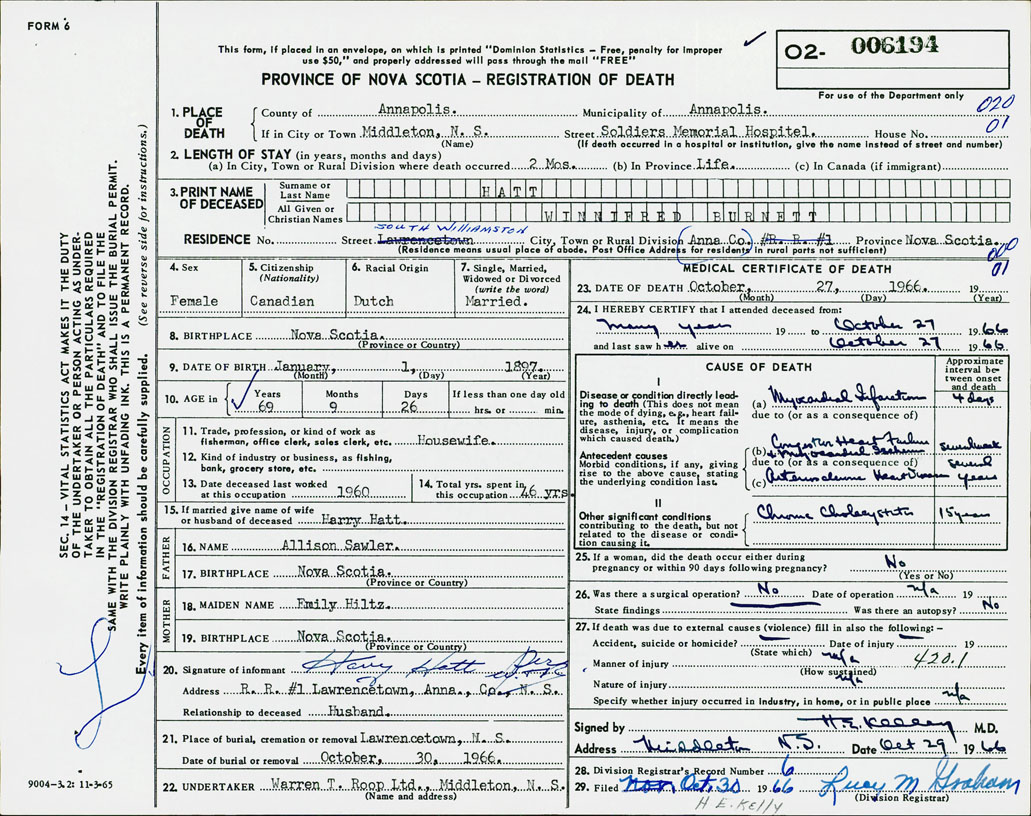 FORM 6
This form, if placed in an envelope, on which is printed "Dominion Statistics – Free, penalty for improper
use $50," and properly addressed will pass through the mail "FREE"
PROVINCE OF NOVA SCOTIA – REGISTRATION OF DEATH
O2- 006194
For use of the Department only
020
01
1. PLACE OF DEATH
County of Annapolis. Municipality of Annapolis.
If in City or Town Middleton, N. S. Street Soldiers Memorial Hospitel. House No.
(Name) (If death occurred in a hospital or institution, give the name instead of street and number)
2. LENGTH OF STAY (in years, months and days)
(a) In City, Town or Rural Division where death occurred 2 Mos. (b) In Province Life. (c) In Canada (if immigrant)
3. PRINT NAME OF DECEASED
Surname or Last Name HATT
All Given or Christian Names WINNIFRED BURNETT
SOUTH WILLIAMSTON
RESIDENCE No. Street Lawrencetown City, Town or Rural Division (Anna Co.) #R. R. #1 Province Nova Scotia.
(Residence means usual place of abode. Post Office Address for residents in rural parts not sufficient)
000
01
4. Sex
Female
5. Citizenship
(Nationality)
Canadian
6. Racial Origin
Dutch
7. Single, Married,
Widowed or Divorced
(write the word)
Married.
8. BIRTHPLACE Nova Scotia.
(Province or Country)
9. DATE OF BIRTH January, 1, 1897.
(Month) (Day) (Year)
10. AGE in Years Months Days If less than one day old
69 9 26 hrs. or min.
OCCUPATION
11. Trade, profession, or kind of work as
fisherman, office clerk, sales clerk, etc. Housewife.
12. Kind of industry or business, as fishing,
bank, grocery store, etc.
13. Date deceased last worked
at this occupation 1960
14. Total yrs. spent in
this occupation 46 yrs.
15. If married give name of wife
or husband of deceased Harry Hatt.
FATHER
16. NAME Allison Sawler.
17. BIRTHPLACE Nova Scotia.
(Province or Country)
MOTHER
18. MAIDEN NAME Emily Hiltz.
19. BIRTHPLACE Nova Scotia.
(Province or Country)
20. Signature of informant Harry Hatt
Address R. R. #1 Lawrencetown, Anna., Co., N. S.
Relationship to deceased Husband.
21. Place of burial, cremation or removal Lawrencetown, N. S.
Date of burial or removal October, 30, 1966.
22. UNDERTAKER Warren T. Roop Ltd., Middleton, N. S.
(Name and address)
MEDICAL CERTIFICATE OF DEATH
23. DATE OF DEATH October, 27, 1966. 19
(Month) (Day) (Year)
24. I HEREBY CERTIFY that I attended deceased from:
many year 19 to October 27 1966
and last saw her alive on October 27 1966
CAUSE OF DEATH
Approximate
interval be-
tween onset
and death
I
Disease or condition directly lead-
ing to death (This does not mean
the mode of dying, e.g., heart fail-
ure, asthenia, etc. It means the
disease, injury, or complication
which caused death.)
(a) Myocardial Infarction 4 days
due to (or as a consequence of)
Antecedent causes
Morbid conditions, if any, giving
rise to the above cause, stating
the underlying condition last.
(b) Congestive Heart Failure
due to (or as a consequence of) several
(c) Heart Disease years
II
Other significant conditions
contributing to the death, but not
related to the disease or condi-
tion causing it.
Chronic Cholecystitis 15 years
25. If a woman, did the death occur either during
pregnancy or within 90 days following pregnancy? No
(Yes or No)
26. Was there a surgical operation? No Date of operation n/a 19
State findings Was there an autopsy? No
27. If death was due to external causes (violence) fill in also the following: –
Accident, suicide or homicide? Date of injury 19
(State which) n/a 420.1
Manner of injury
(How sustained)
Nature of injury n/a
Specify whether injury occurred in industry, in home, or in public place n/a
Signed by H. E. Kelley M.D.
Address Middleton N.S. Date Oct 29 1966
28. Division Registrar's Record Number 6
29. Filed Nov Oct. 30 1966 Lucy M Graham
(Division Registrar)
H E. KELLY
SEC. 14 – VITAL STATISTICS ACT MAKES IT THE DUTY
OF THE UNDERTAKER OR PERSON ACTING AS UNDER-
TAKER TO OBTAIN ALL THE PARTICULARS REQUIRED
IN THE "REGISTRATION OF DEATH" AND TO FILE THE
SAME WITH THE DIVISION REGISTRAR WHO SHALL ISSUE THE BURIAL PERMIT.
WRITE PLAINLY WITH UNFADING INK. THIS IS A PERMANENT RECORD.
Every item of information should be carefully supplied. (See reverse side for instructions.)
9004-3.2: 11-3-65